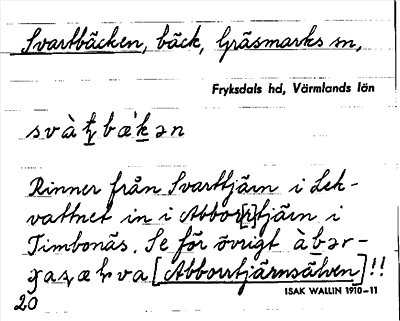 Svartbäcken, bäck, Gräsmarks sn,
Fryksdals hd, Värmlands län
Rinner från Svarttjärn i Lek-
vattnet in i Abbor[r]tjärn i
Timbonäs. Se för övrigt
[Abborrtjärnsälven]!!
ISAK WALLIN 1910–11
20